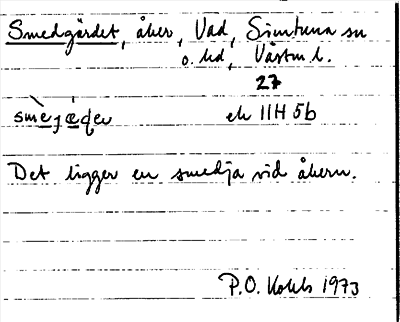 Smedgärdet, åker, Vad, Simtuna sn
o. hd, Västm l.
27
ek 11H 5b
Det ligger en smedja vid åkern.
P.O. 1973